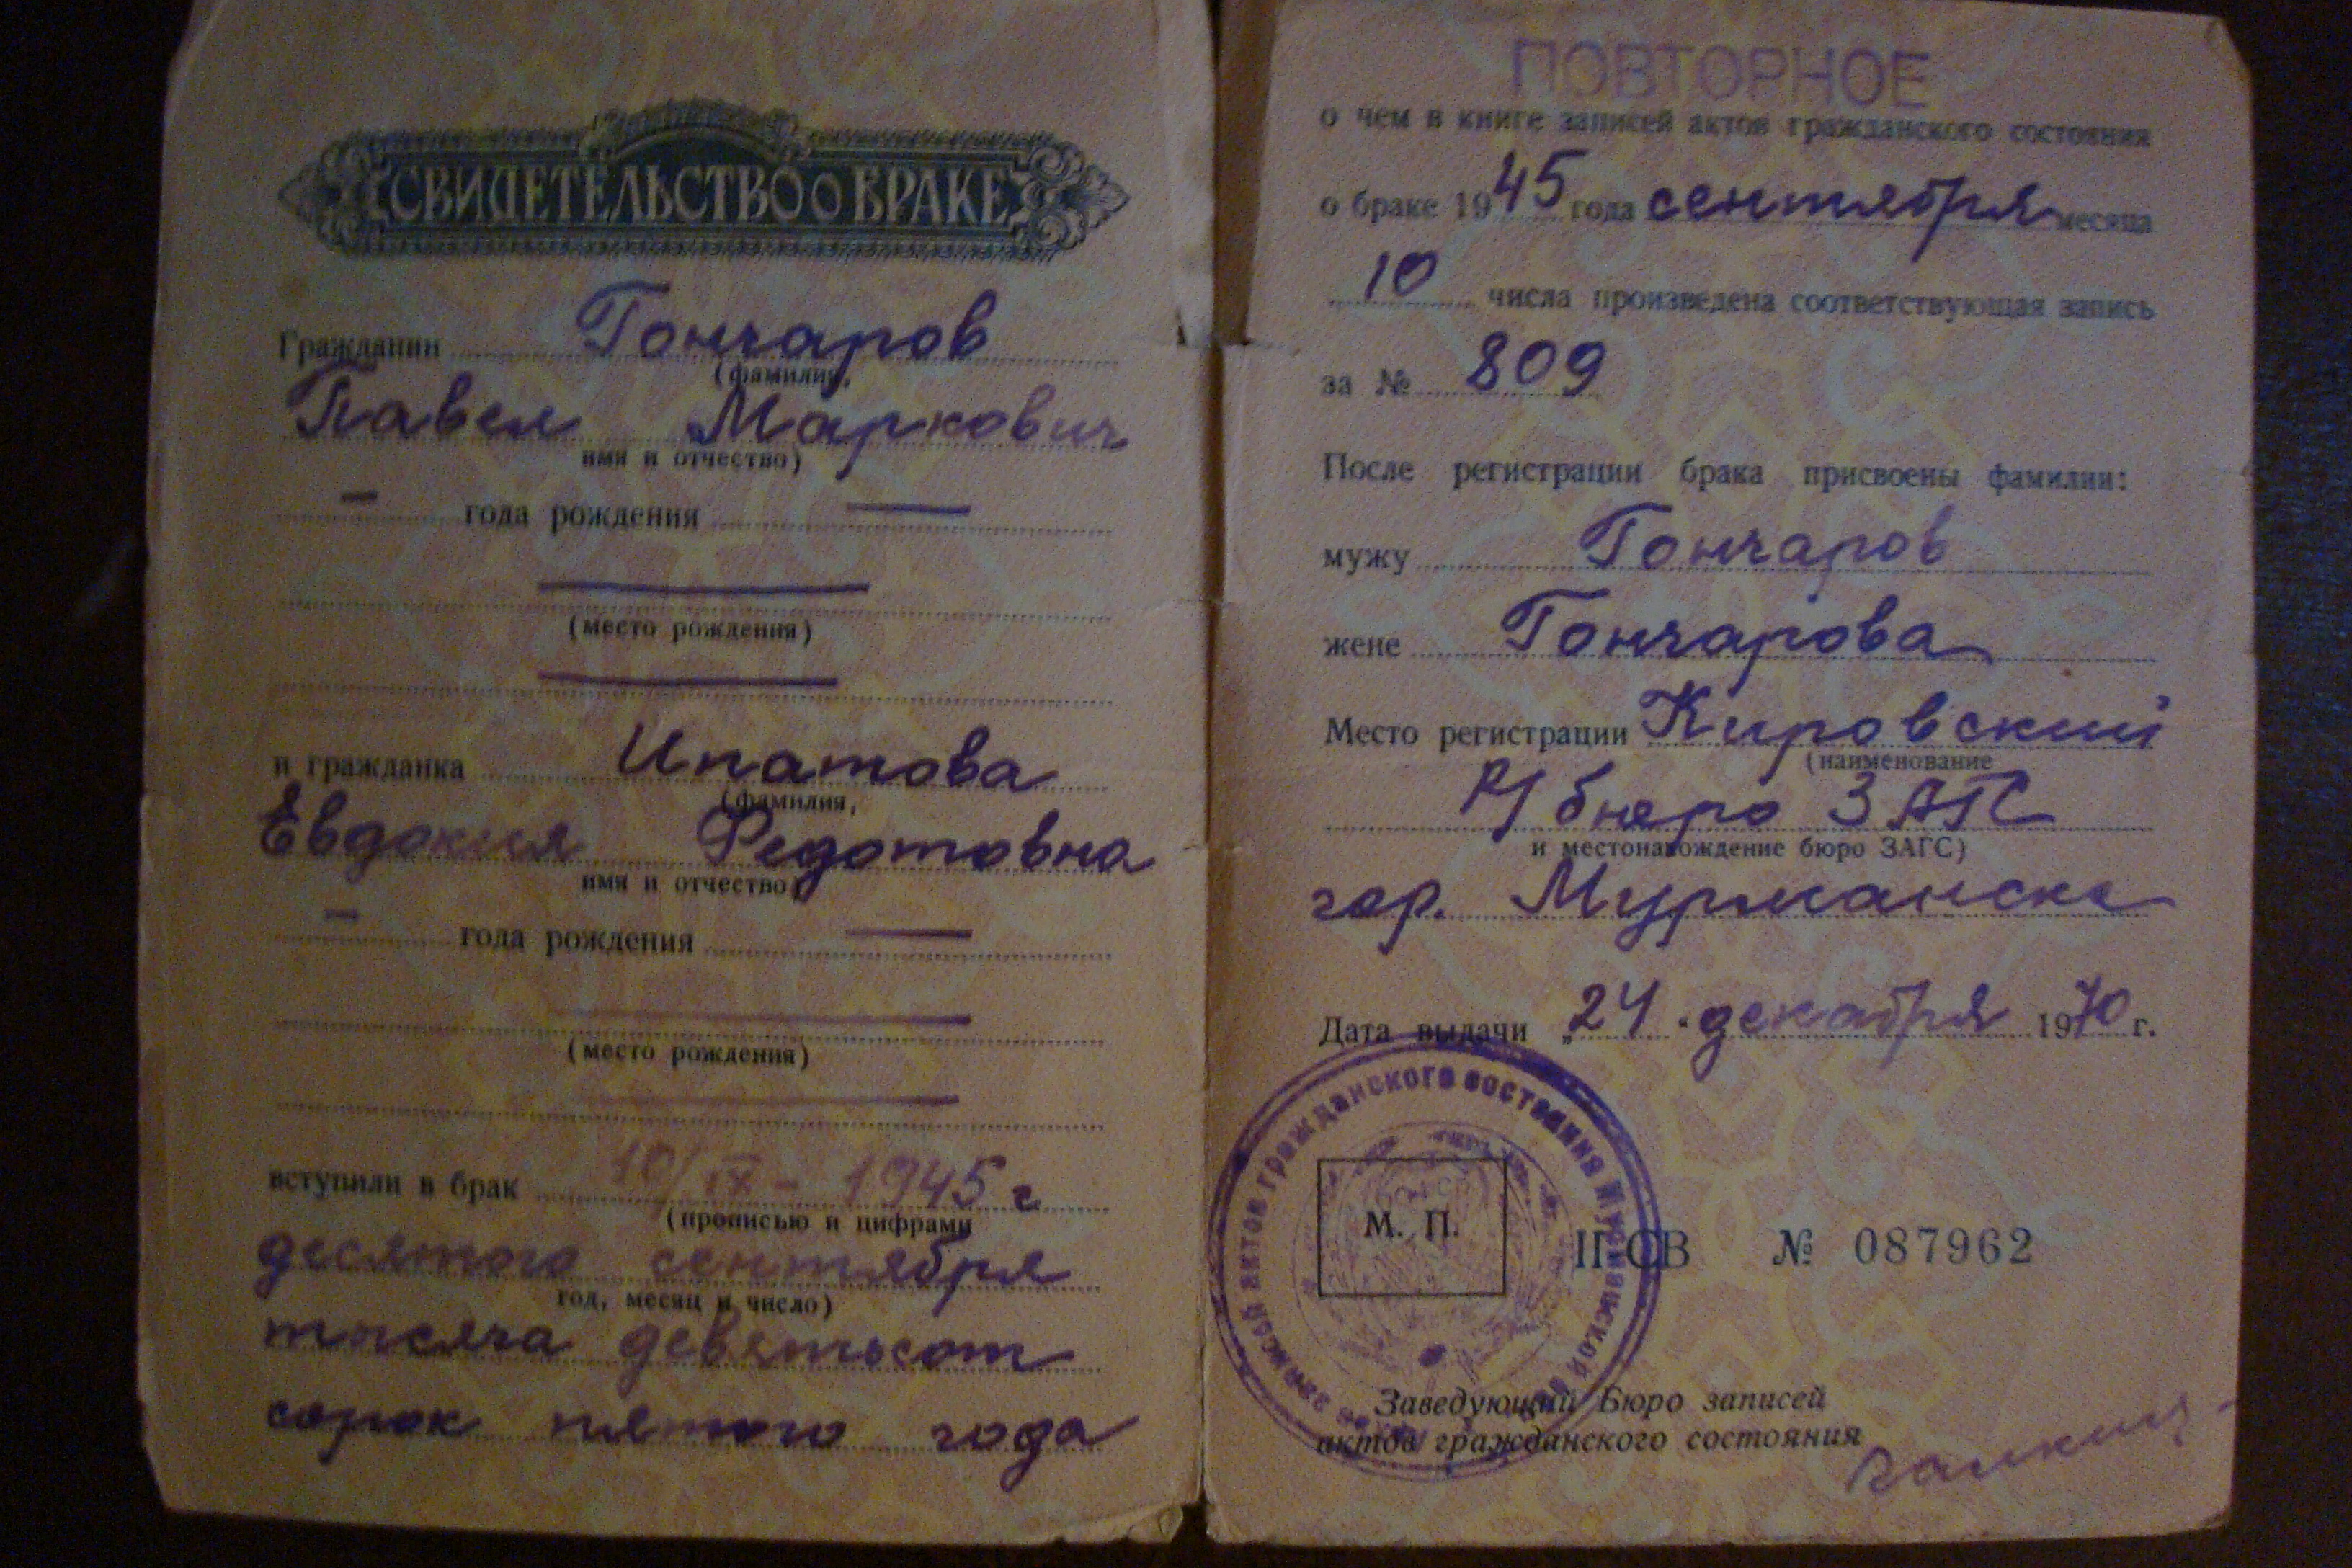 СВИДЕТЕЛЬСТВО о БРАКЕ
Гражданин Гончаров
(фамилия,
Павел Маркович
имя и отчество)
— года рождения —
(место рождения)
и гражданка Ипатова
(фамилия,
Евдокия Федотовна
имя и отчество)
— года рождения —
(место рождения)
вступили в брак 10/IX - 1945 г
(прописью и цифрами
десятого сентября
год, месяц и число)
тысяча девятьсот
сорок пятого года
ПОВТОРНОЕ
о чем в книге записей актов гражданского состояния
о браке 1945 года сентября месяца
10 числа произведена соответствующая запись
за № 809
После регистрации брака присвоены фамилии:
мужу Гончаров
жене Гончарова
Место регистрации Кировский
(наименование
р/бюро ЗАГС
и местонахождение бюро ЗАГС)
гор. Мурманска
Дата выдачи „24. декабря 1970 г.
актов гражданского состояния
М. П.
II-СВ № 087962
Заведующий Бюро записей
актов гражданского состояния